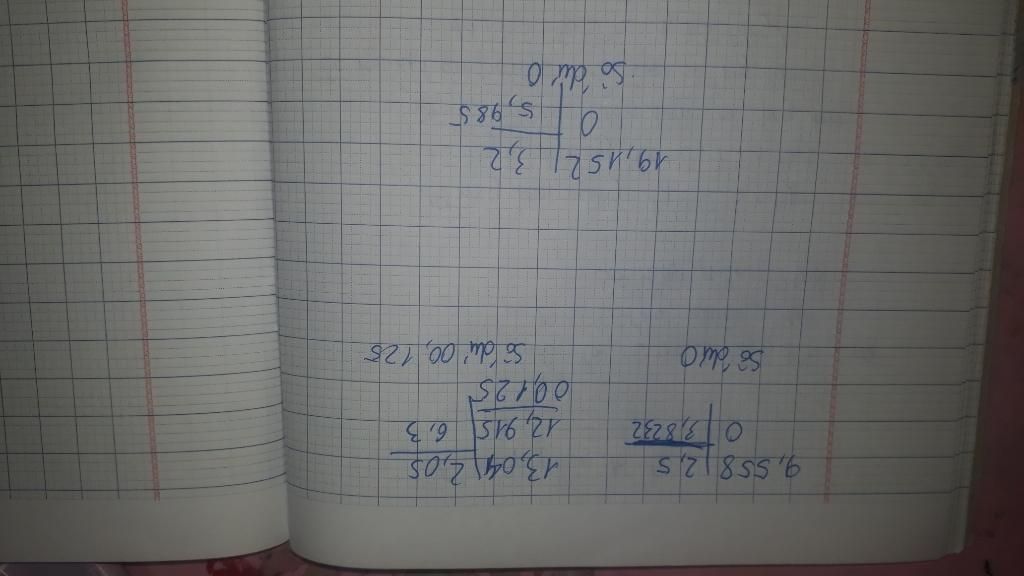 9,558 | 2,5
0 | 3,8232
Số dư 0
13,04 | 2,05
12,915 | 6,3
00,125
Số dư 00,125
19,152 | 3,2
0 | 5,985
Số dư 0